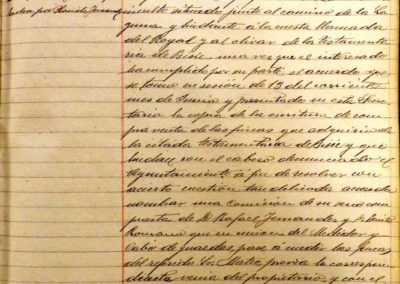 inculto situado junto al camino de la La
guna y lindante á la cuesta llamada
del Royal y al olivar de la testamenta
ria de Bésie, una vez que el interesado
ha cumplido por su parte el acuerdo que
se tomo en sesión de 13 del corriente
mes de Junio y presentado en esta Secre
taria la copia de la escritura de com
pra venta de las fincas que adquirio de
la citada testamentaria de Bésie y que
lindan con el cabeso denunciado el
Ayuntamiento á fin de resolver con
acierto cuestión tan delicada acuerda
nombrar una Comision de su seno com
puesta de D. Rafael Fernandez y D. Benito
Romano que en union del Medidor y
Cabo de guardas pase á medir las fincas
del referido Sr. Mateo previa la correspon
diente venia del propietario y con el